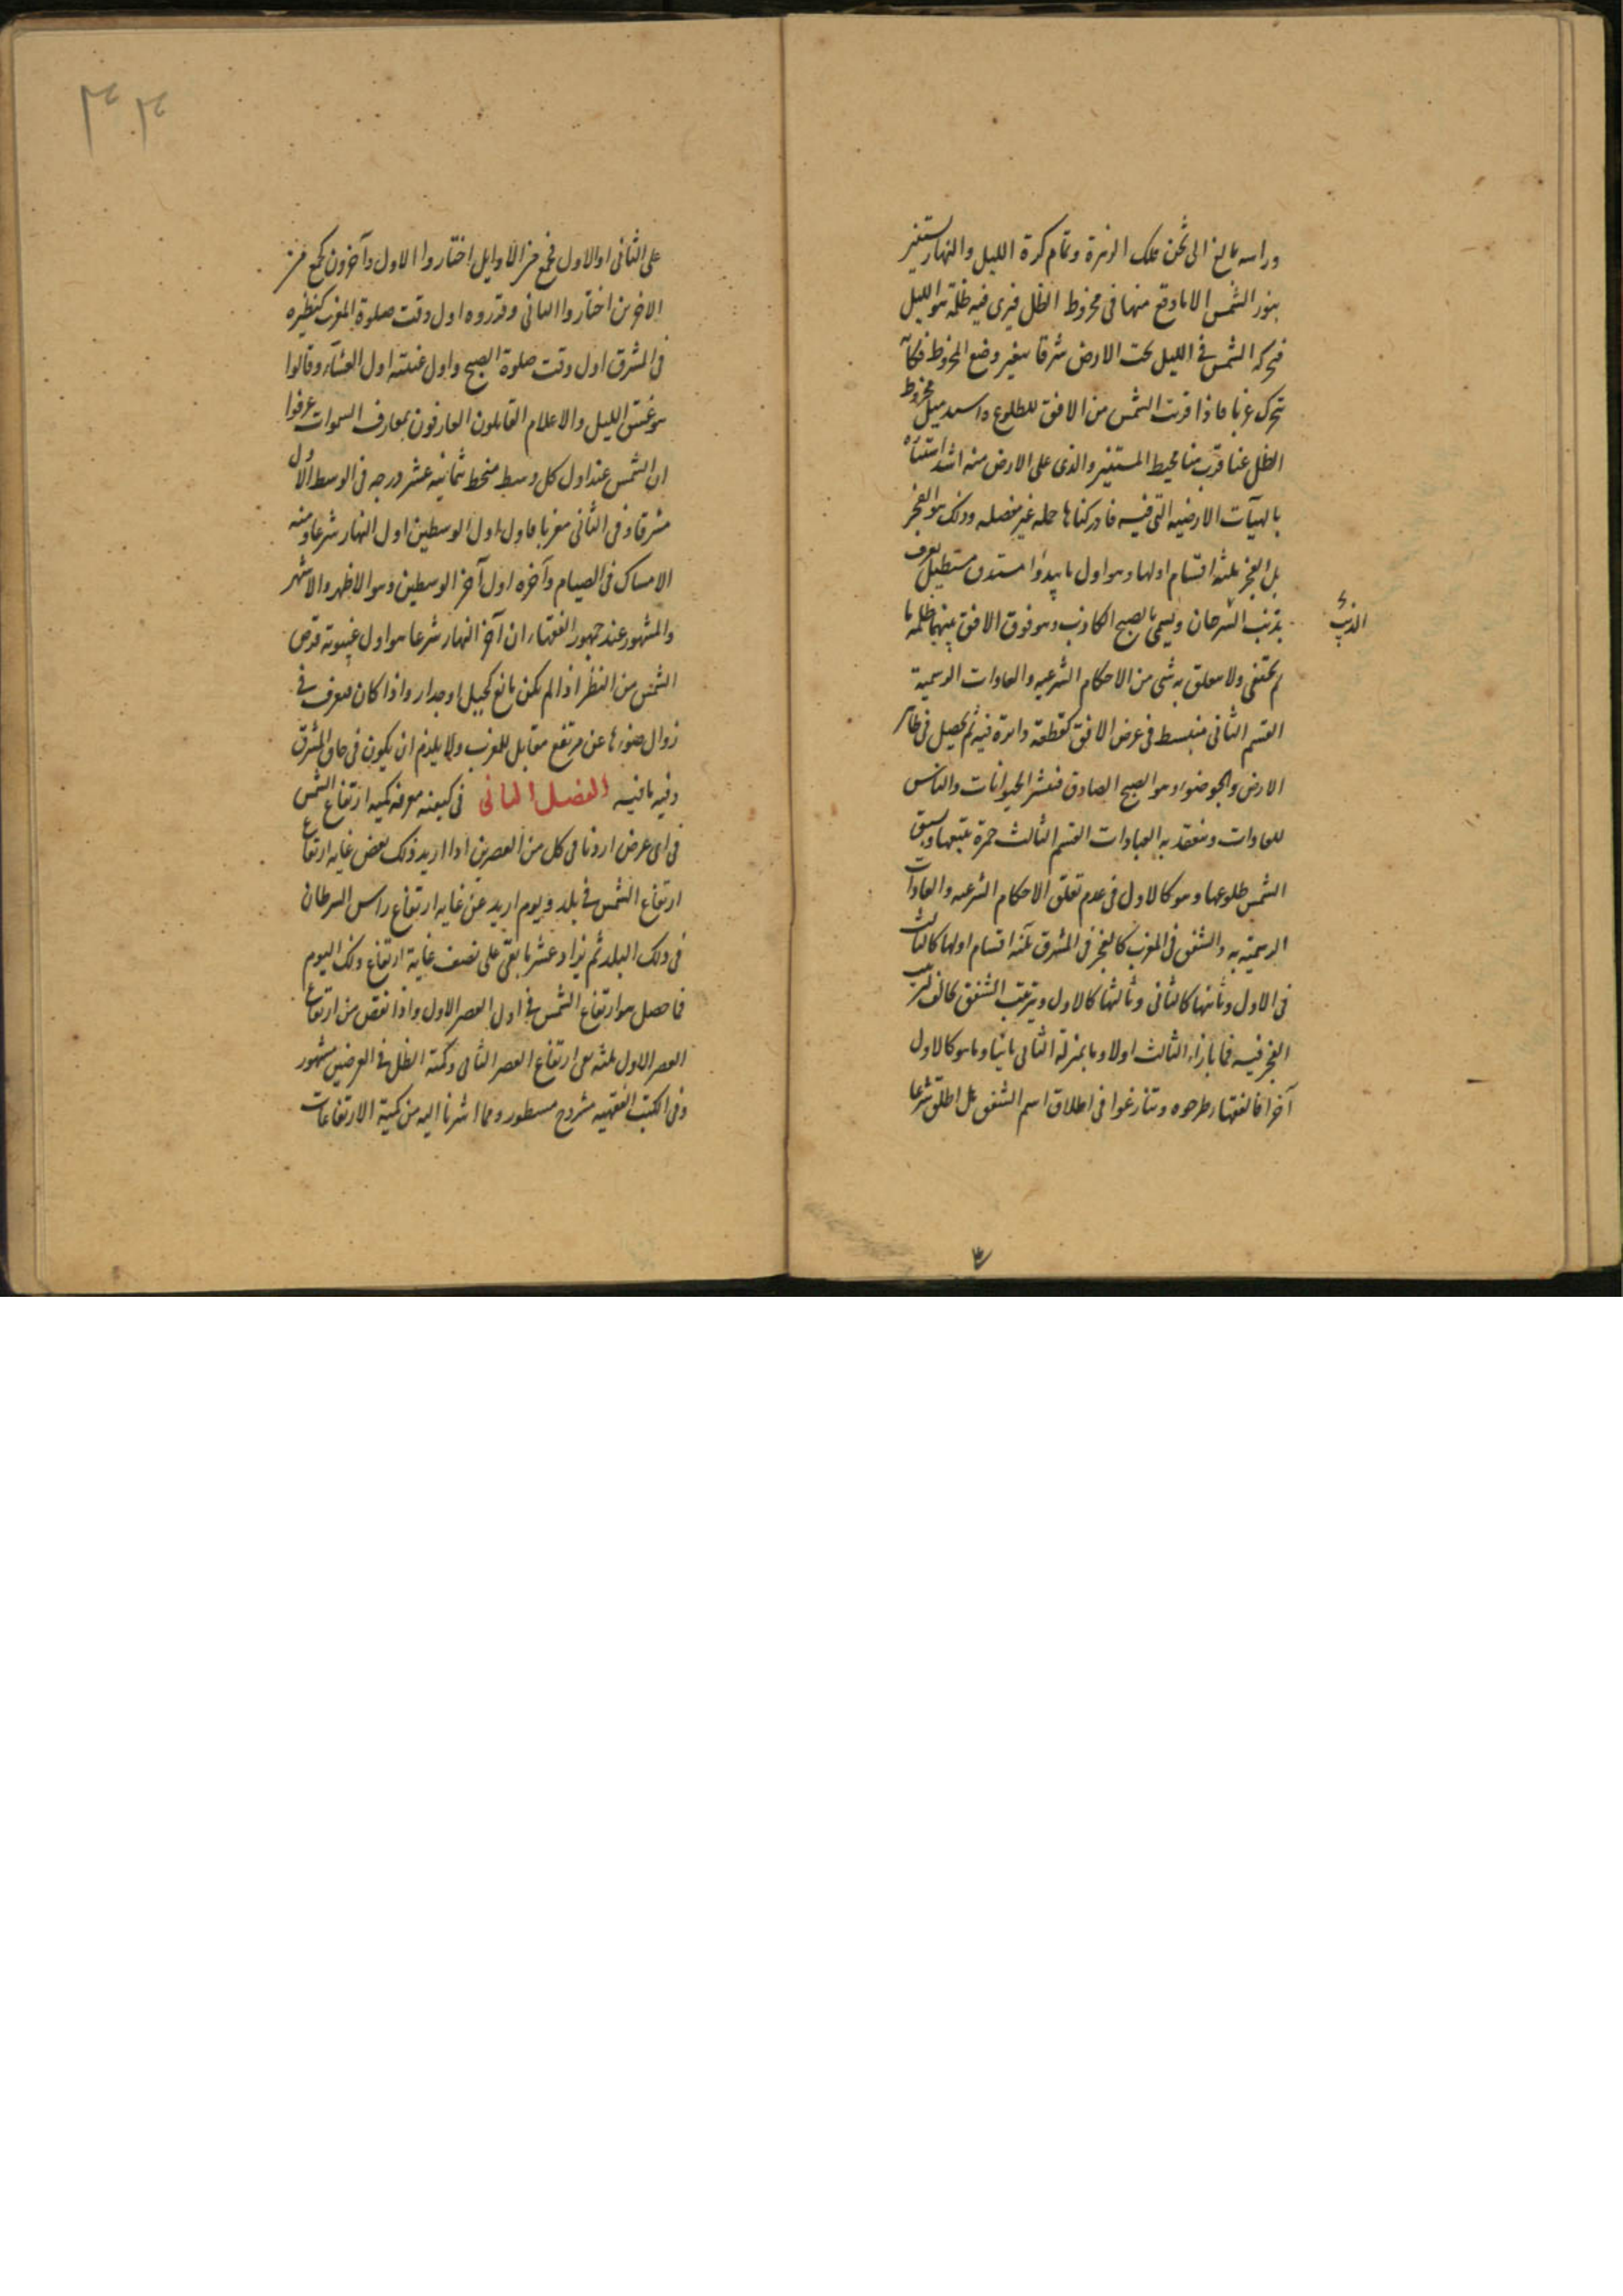 وراسه بالغ الى ثخن فلك الزهرة وتمام كرة الليل والنهار يستنير
بنور الشمس الا ما وقع منها فى مخروط الظل فيرى فيه ظلمة هو الليل
فحركة الشمس فى الليل تحت الارض شرقا يتغير وضع المخروط فكانه
تتحرك غربا فاذا قربت الشمس من الافق للطلوع و ميل مخروط
الظل عنا قرب منا محيط المستنير والذى على الارض منه اشد استنارة
بالهيآت الارضيه التى فيه فادركناها جمله غير مفصله وذلك هو الفجر
بل الفجر ثلثة اقسام اولها وهو اول ما يبدوا مستدق مستطيل يعرف
بذنب السرحان ويسمى بالصبح الكاذب وهو فوق الافق بينهما ظلمة ما
الذئب
لم يختفى ولا يتعلق به شى من الاحكام الشرعيه والعادات الرسمية
القسم الثانى منبسط فى عرض الافق كقطعة دايرة فيه ثم يحصل فى ظاهر
الارض والجو ضوء وهو الصبح الصادق فينتشر الحيوانات والناس
للعادات وينعقد به العبادات القسم الثالث حمرة تتبعها ويسبق
الشمس طلوعها وهو كالاول فى عدم تعلق الاحكام الشرعيه والعادات
الرسميه به والشفق فى المغرب كالفجر فى المشرق ثلثة اقسام اولها كالثالث
فى الاول وثانيها كالثانى وثالثها كالاول وترتيب الشفق كالف لترتيب
الفجر فيه فما بازاء الثالث اولا وما بمنزلة الثانى ثانيا وما هو كالاول
آخرا فالفقهاء طرحوه وتنازعوا فى اطلاق اسم الشفق هل اطلق شرعا
على الثانى او الاول فجمع من الاوايل اختاروا الاول وآخرون كجمع من
الاخرين اختاروا الثانى وقدروه اول وقت صلوة المغرب كنظيره
فى المشرق اول وقت صلوة الصبح واول غيبته اول العشاء وقالوا
هو غسق الليل والاعلام القايلون العارفون بمعارف السموات عرفوا
ان الشمس عند اول كل وسط منحط ثمانيه عشر درجه فى الوسط الاول
مشرقا وفى الثانى مغربا فاول اول الوسطين اول النهار شرعا ومنه
الامساك فى الصيام وآخره اول آخر الوسطين وهو الاظهر والاشهر
والمشهور عند جمهور الفقهاء ان آخر النهار شرعا هو اول غيبوبة قرص
الشمس من النظر اذا لم يكن مانع كجبل او جدار واذا كان فيعرف فى
زوال ضوءها عن مرتفع مقابل للمغرب ولا يلزم ان يكون فى حاق المشرق
وفيه ما فيه الفصل الثانى فى كيفيه معرفه كميه ارتفاع الشمس
فى اى عرض اردنا فى كل من العصرين اذا اريد ذلك نقص غايه ارتفاع
ارتفاع الشمس فى بلد ويوم اريد عن غايه ارتفاع راس السرطان
فى ذلك البلد ثم يزاد عشر ما بقى على نصف غاية ارتفاع ذلك اليوم
فما حصل هو ارتفاع الشمس فى اول العصر الاول واذا نقص من ارتفاع
العصر الاول ثلثه بقى ارتفاع العصر الثانى وكمية الظل فى العرضين مشهور
وفى الكتب الفقهيه مشروح مسطور ومما اشرنا اليه من كمية الارتفاعات